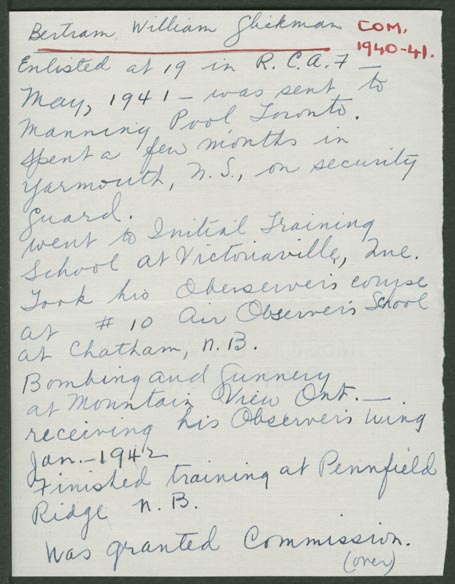 Bertram William Glickman COM.
1940-41.
Enlisted at 19 in R.C.A.F
May, 1941 - was sent to
Manning Pool Toronto.
Spent a few months in
Yarmouth, N.S., on security
guard.
went to Initial Training
School at Victoriaville, Que.
Took his Oberserver's course
at #10 Air Observer's School
at Chatham, N.B.
Bombing and Gunnery
at Mountain View Ont. —
receiving his Observer's wing
Jan. - 1942
Finished training at Pennfield
Ridge N.B.
Was granted Commission.
(over)